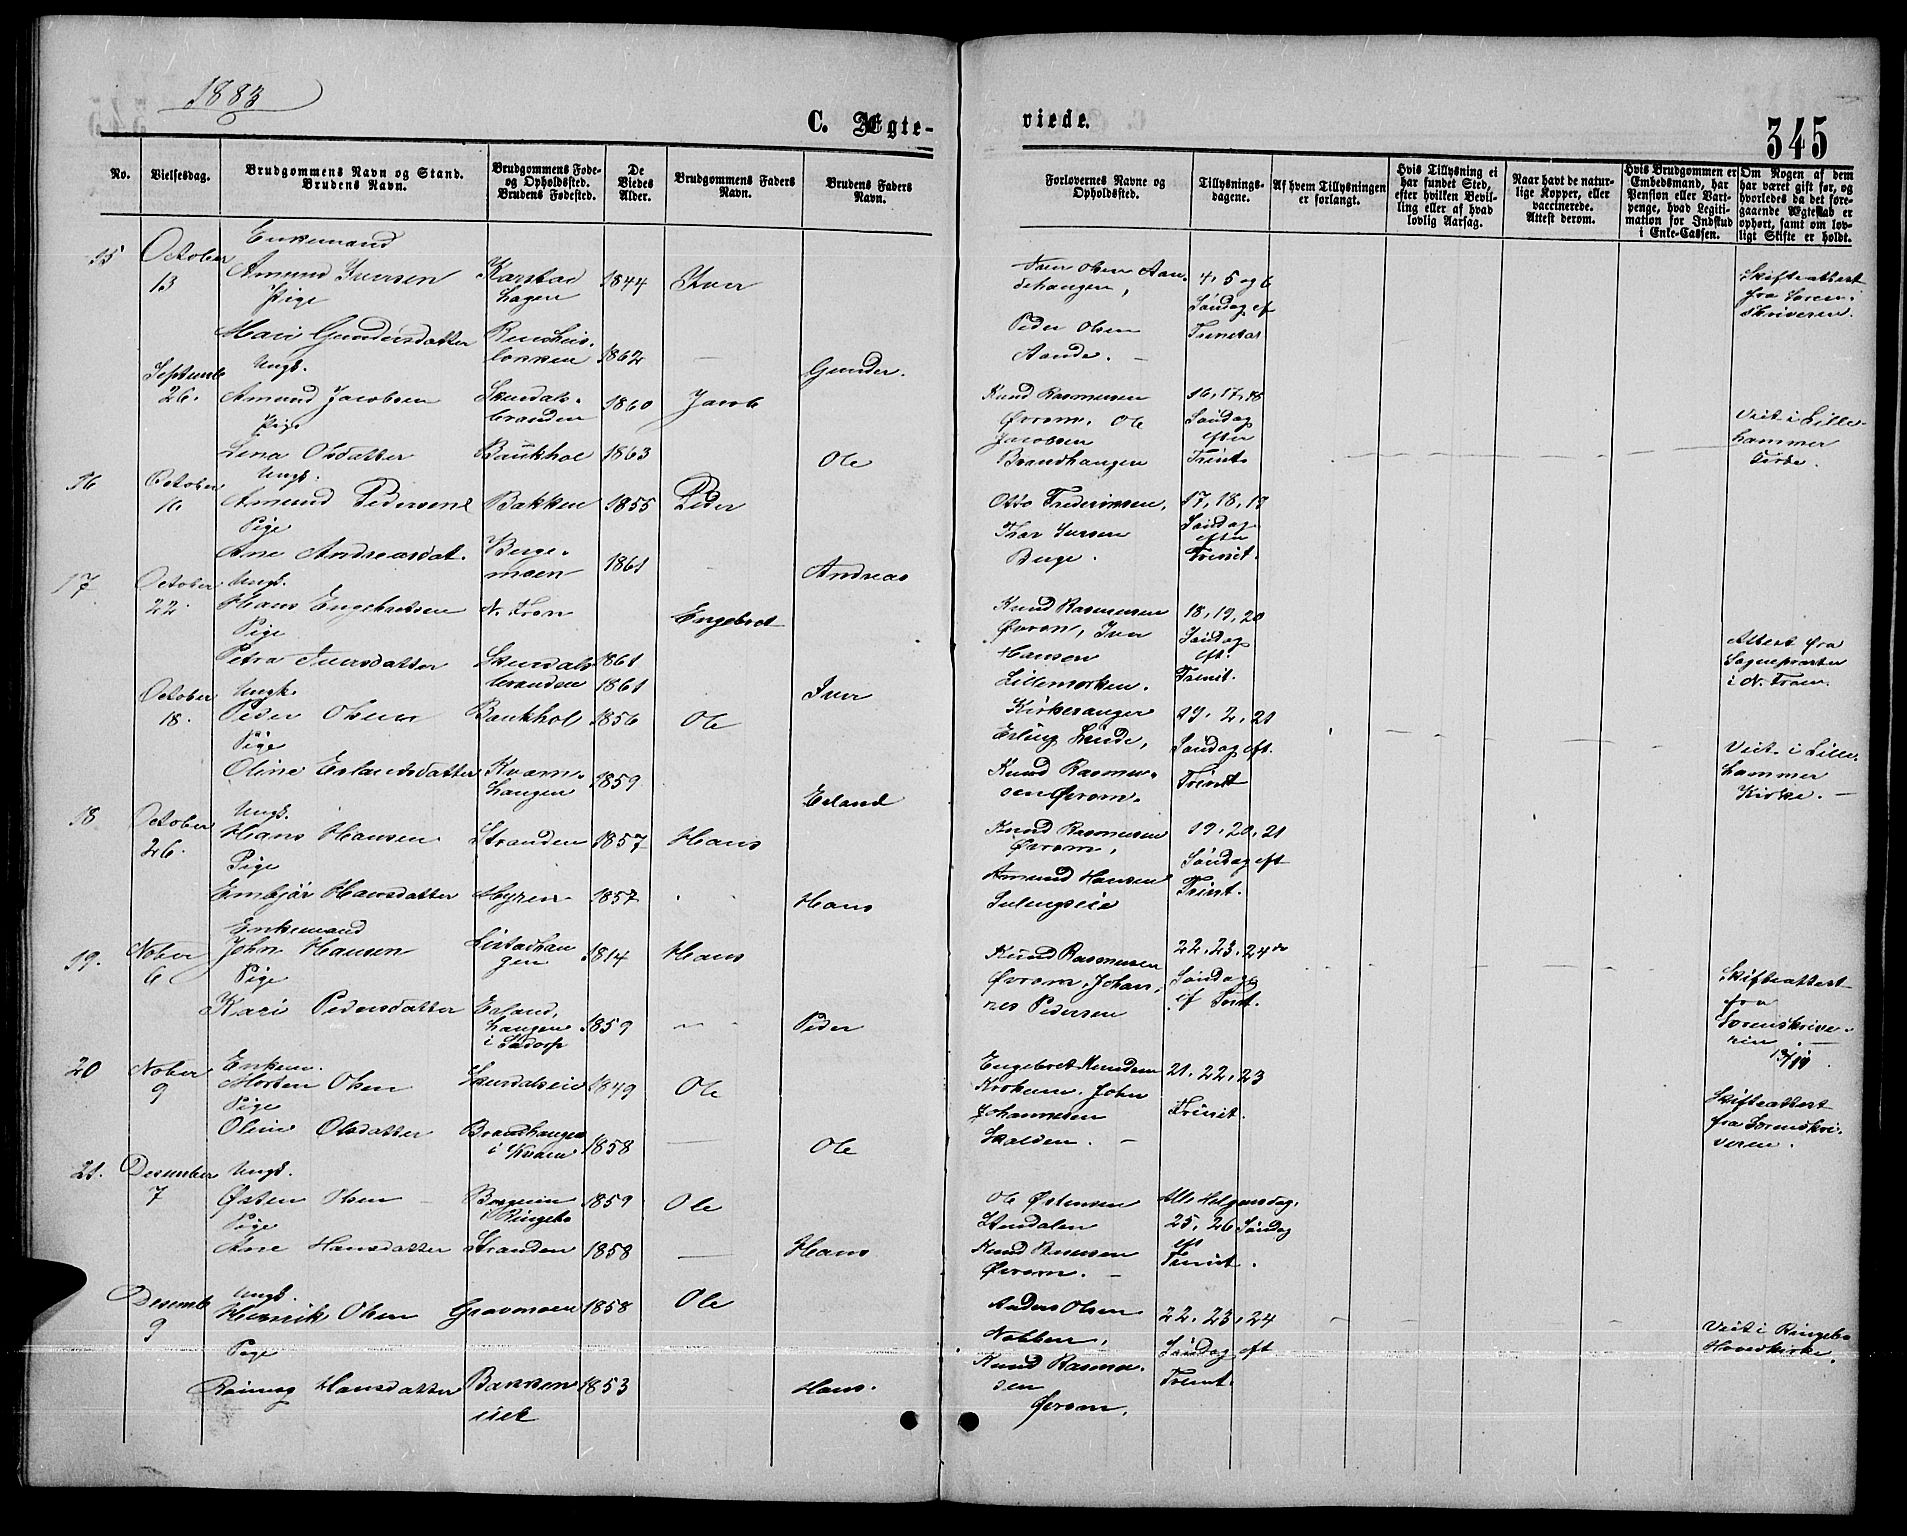 1883
C. Ægte-
viede.
345
No.
Vielsesdag.
Brudgommens Navn og Stand.
Brudens Navn.
Brudgommens Føde-
og Opholdssted.
Brudens Fødested.
De
Viedes
Alder.
Brudgommens Faders
Navn.
Brudens Faders
Navn.
Forlovernes Navne og
Opholdssted.
Tillysnings-
dagene.
Af hvem Tillysningen
er forlangt.
Hvis Tillysning ei
har fundet Sted,
efter hvilken Bevil-
ling eller af hvad
lovlig Aarsag.
Naar havt de natur-
lige Kopper, eller
vaccinerede.
Attest derom.
Hvis Brudgommen er
Embedsmand, har
Pension eller Vart-
penge, hvad Legiti-
mation for Indskud
i Enke-Cassen.
Om Nogen af dem
har været gift før, og
hvorledes da det fore-
gaaende Ægteskab er
ophørt, samt om lov-
ligt Skifte er holdt.
15
October
13
Enkemand
Amund Iversen
Pige
Mari Gundersdatter
Karstad
hagen
løkken
1844
1862
Iver
Gunder.
Iver Olsen
Peder Olsen
4, 5 og 6
Søndag ef
Trinetas
Skifteattest
fra Soren-
skriveren.
Septemb
26.
Ungk.
Amund Jacobsen
Pige
Lina Olsdatter
Skurdals-
branden
Baukhol
1860
1863
Jacob
Ole
Knud Rasmusen
Øvrom. Ole
Jacobsen
Brandhaugen
16, 17, 18
Søndag
efter
Trint.
Viet i Lille-
hammer
Kirke.
16
October
16
Ungk.
Amund Pedersen
Pige
Ane Andreasdat.
Bakken
Berge-
moen
1855
1861
Peder
Andreas
Otto Frederiksen,
Thor Iversen
Berge.
17, 18, 19
Søndag
efter
Trinit.
17
October
22.
Ungk.
Hans Engebretsen
Pige
Petra Iversdatter
N. Fron
Skurdals
branden
1861
1861
Engebret
Iver
Knud Rasmusen
Øvrom, Iver
Hansen
Lillemorken.
18, 19, 20
Søndag
eft.
Trinit.
Attest fra
Sognepræsten
i N. Fron.
October
18.
Ungk.
Peder Olsen
Pige
Oline Erlandsdatter
Baukhol
Kvarn-
haugen
1856
1859
Ole
Erland
Kirkesanger
Erling Lunde,
Knud Rasmu-
sen Øvrom.
19. 2, 21
Søndag eft.
Trinit
Viet i Lille-
hammer
Kirke.
18
October
26.
Ungk.
Hans Hansen
Pige
Embjør Hansdatter
Stranden
Myren
1857
1857
Hans
Hans
Knud Rasmusen
Øvrom,
Amund Hansen
Sulengseie
19, 20, 21
Søndag eft
Trinit.
19.
Nober
6
Enkemand
John Hansen
Pige
Kari Pedersdatter
Listadhau
gen
Erland,
haugen
i Sødorp
1814
1859
Hans
Peder
Knud Rasmusen
Øvrom, Johan-
nes Pedersen
22. 23. 24de
Søndag
ef Trnt.
Skifteattest
fra
Sorenskrive-
ren.
20
Nober
9
Enkem.
Morten Olsen
Pige
Oline Olsdatter
Skurdalseie
Brandhaugen
i Kvam
1849
1858
Ole
Ole
Engebret Knudsen
Krokun. John
Johannesen
Skalden.
21. 22. 23
Trinit.
Skifteattest
fra Sorenskri-
veren.
21.
Desember
7
Ungk.
Østen Olsen
Pige
Ane Hansdatter
i Ringebo
Stranden
1859
1858
Ole
Hans
Ole Østensen
Stendalen
Knud Rasmusen
Øvrom.
Alle Helgensdag.
25, 26 Søndag
eft
Trinit.
Desemb
9
Ungk.
Henrik Olsen
Pige
Rønnog Hansdatter
Gravmoen
Bakken
1858
1853
Ole
Hans.
Anders Olsen
Nabben,
Knud Rasmu-
sen
Øvrom.
22, 23, 24
Søndag eft
Trinit.
Viet i Ringebo
Hovedkirke.